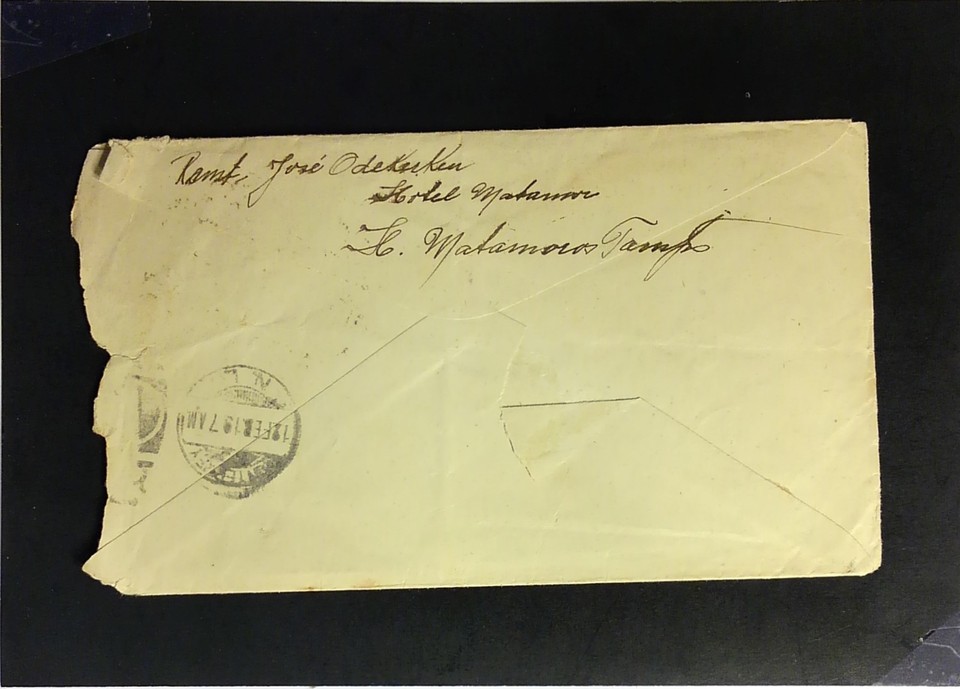 Remt. José Odekerken
Hotel Matamor
H. Matamoros Tamps
N. L.
12 FEB 19 7 AM